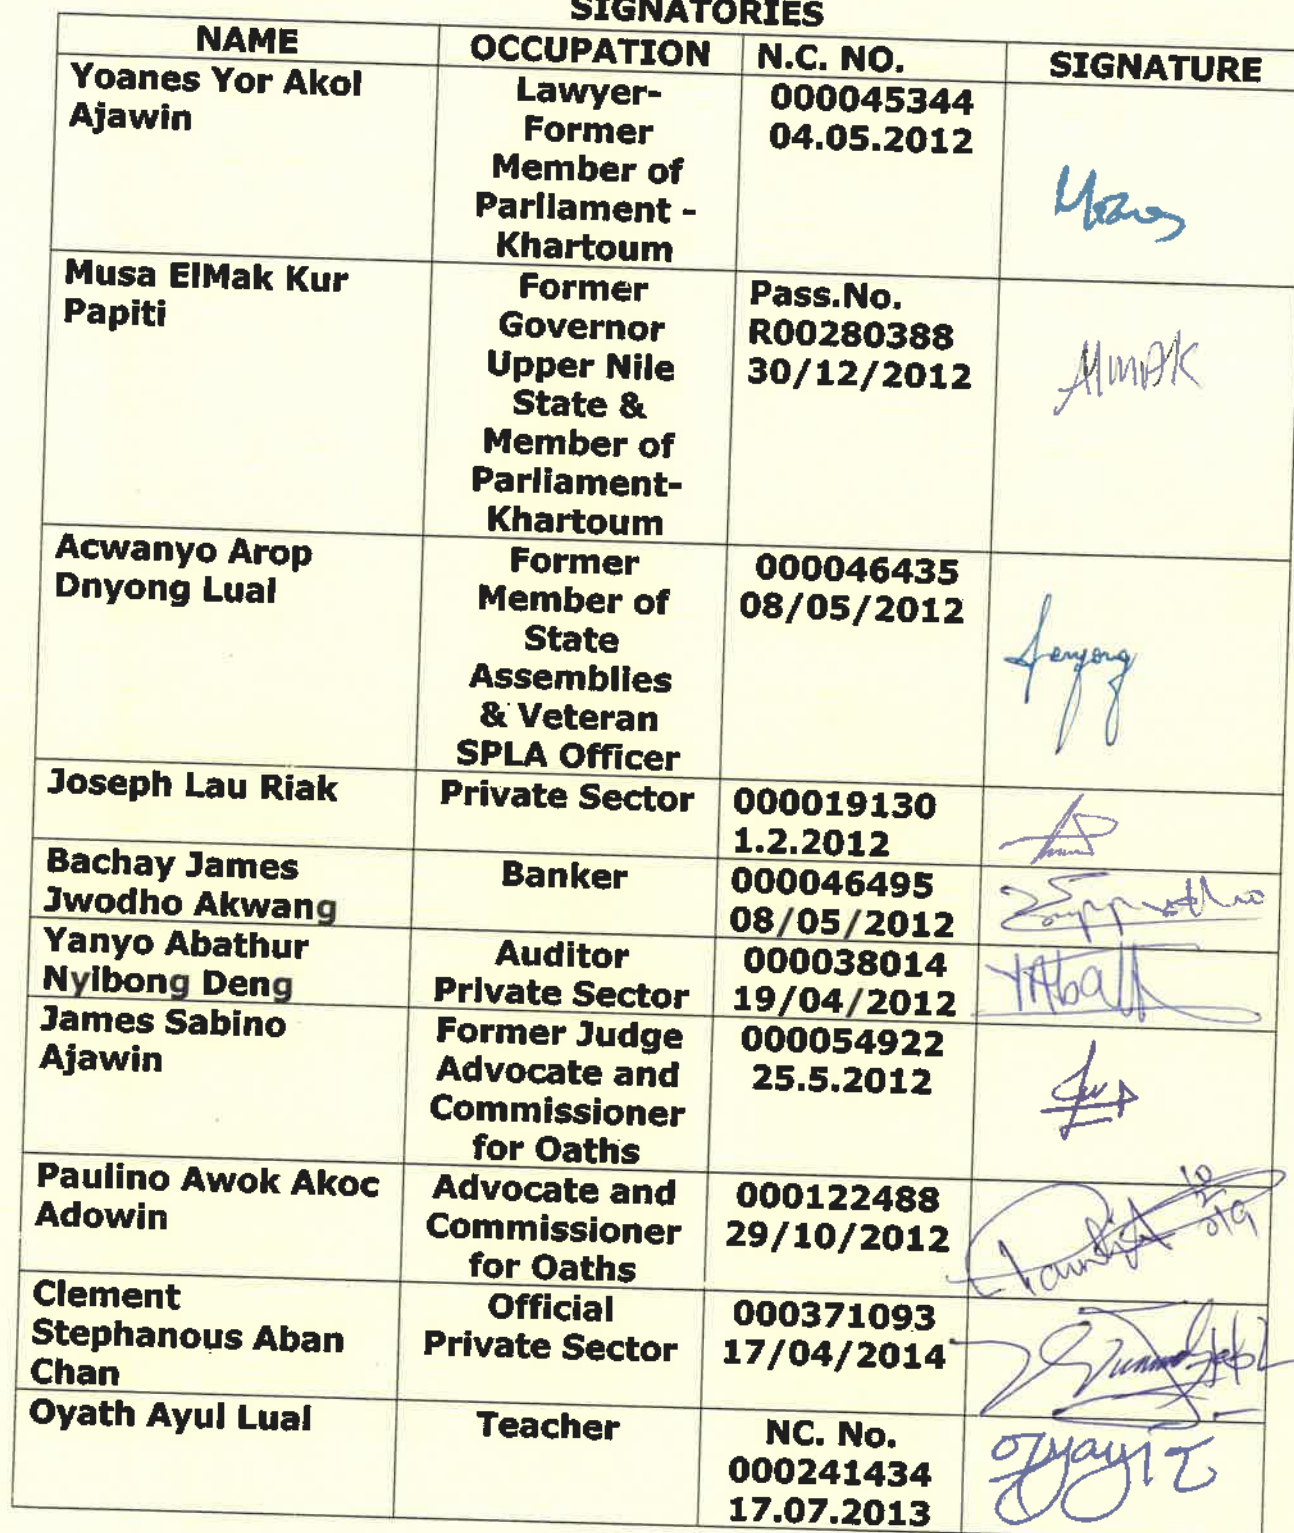 SIGNATORIES
NAME OCCUPATION N.C. NO. SIGNATURE
Yoanes Yor Akol
Ajawin
Lawyer-
Former
Member of
Parliament -
Khartoum
000045344
04.05.2012
Musa ElMak Kur
Papiti
Former
Governor
Upper Nile
State &
Member of
Parliament-
Khartoum
Pass.No.
R00280388
30/12/2012
Acwanyo Arop
Dnyong Lual
Former
Member of
State
Assemblies
& Veteran
SPLA Officer
000046435
08/05/2012
Joseph Lau Riak
Private Sector
000019130
1.2.2012
Bachay James
Jwodho Akwang
Banker
000046495
08/05/2012
Yanyo Abathur
Nyibong Deng
Auditor
Private Sector
000038014
19/04/2012
James Sabino
Ajawin
Former Judge
Advocate and
Commissioner
for Oaths
000054922
25.5.2012
Paulino Awok Akoc
Adowin
Advocate and
Commissioner
for Oaths
000122488
29/10/2012
Clement
Stephanous Aban
Chan
Official
Private Sector
000371093
17/04/2014
Oyath Ayul Lual
Teacher
NC. No.
000241434
17.07.2013